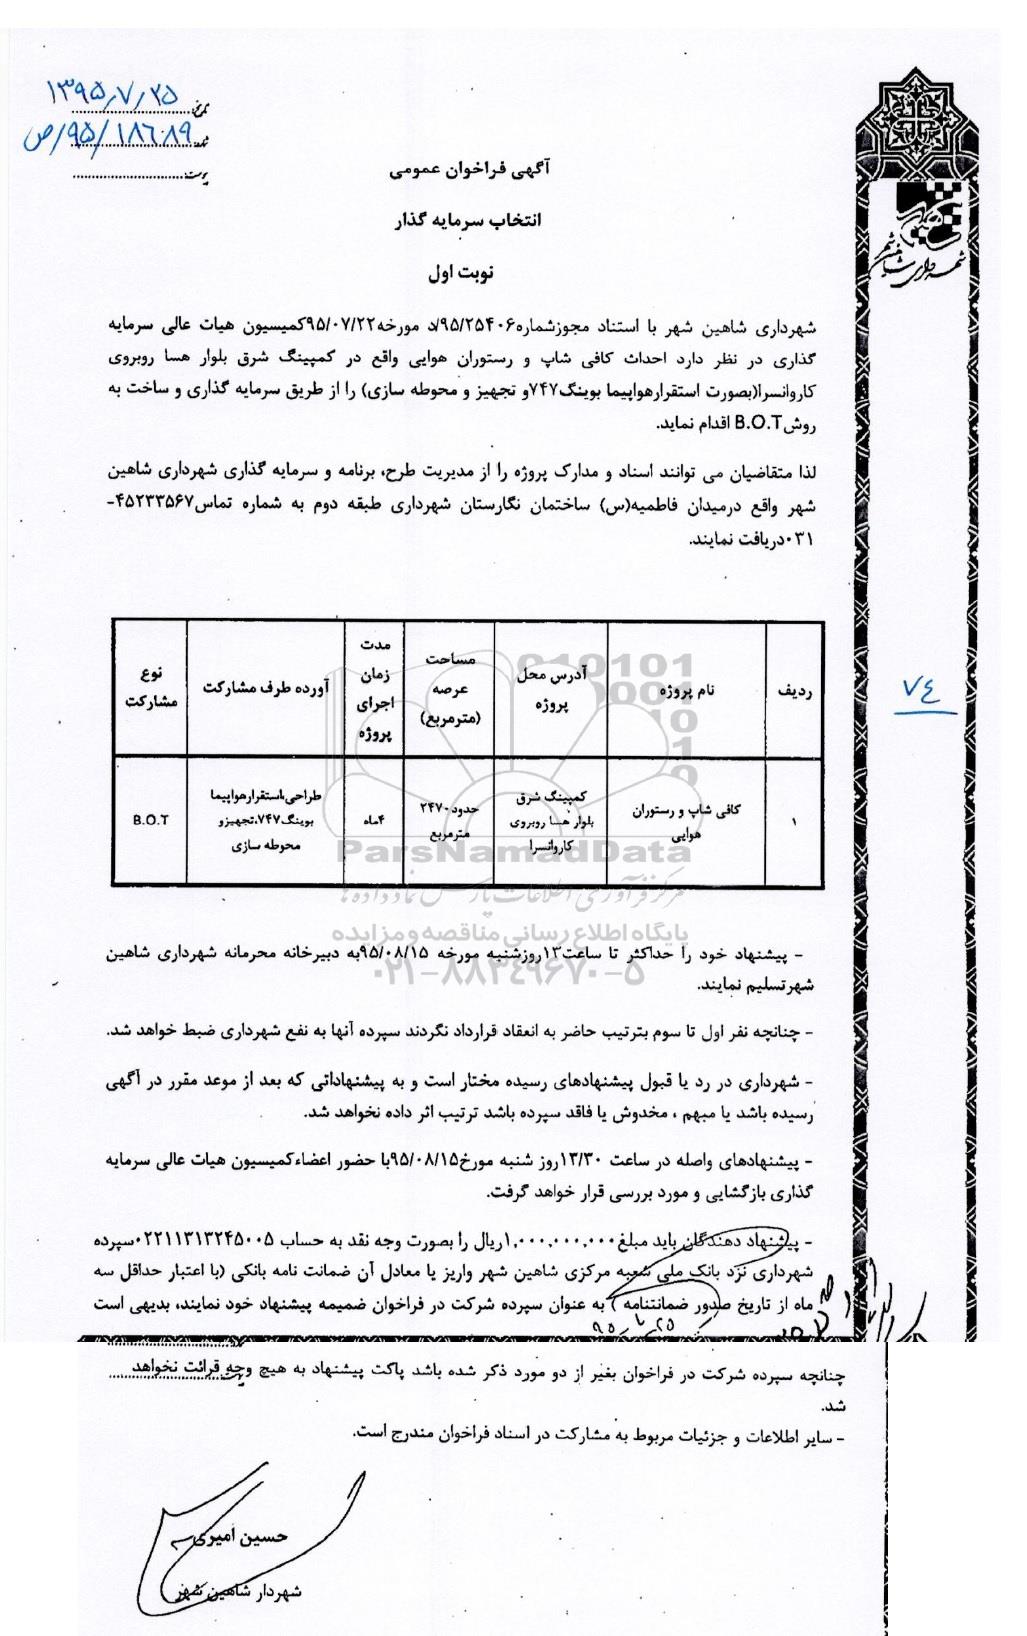 تاریخ: ۱۳۹۵٫۷٫۲۵
شماره: ۱۸۶۰۸۹/۹۵/ص
پیوست:
شهرداری شاهین شهر
آگهی فراخوان عمومی
انتخاب سرمایه گذار
نوبت اول
شهرداری شاهین شهر با استناد مجوزشماره۹۵/۲۵۴۰۶/د مورخه۹۵/۰۷/۲۲کمیسیون هیات عالی سرمایه
گذاری در نظر دارد احداث کافی شاپ و رستوران هوایی واقع در کمپینگ شرق بلوار هسا روبروی
کاروانسرا(بصورت استقرارهواپیما بوینگ۷۴۷و تجهیز و محوطه سازی) را از طریق سرمایه گذاری و ساخت به
روشB.O.T اقدام نماید.
لذا متقاضیان می توانند اسناد و مدارک پروژه را از مدیریت طرح، برنامه و سرمایه گذاری شهرداری شاهین
شهر واقع درمیدان فاطمیه(س) ساختمان نگارستان شهرداری طبقه دوم به شماره تماس۴۵۲۳۳۵۶۷-
۰۳۱دریافت نمایند.
۷۴
ردیف	نام پروژه	آدرس محل پروژه	مساحت عرصه (مترمربع)	مدت زمان اجرای پروژه	آورده طرف مشارکت	نوع مشارکت
۱	کافی شاپ و رستوران هوایی	کمپینگ شرق بلوار هسا روبروی کاروانسرا	حدود۲۴۷۰ مترمربع	۴ماه	طراحی،استقرارهواپیما بوینگ۷۴۷،تجهیزو محوطه سازی	B.O.T
ParsNamadData
مرکز فرآوری اطلاعات پارس نماد داده ها
پایگاه اطلاع رسانی مناقصه و مزایده
۰۲۱-۸۸۳۴۹۶۷۰-۵
- پیشنهاد خود را حداکثر تا ساعت۱۳روزشنبه مورخه ۹۵/۰۸/۱۵به دبیرخانه محرمانه شهرداری شاهین
شهرتسلیم نمایند.
- چنانچه نفر اول تا سوم بترتیب حاضر به انعقاد قرارداد نگردند سپرده آنها به نفع شهرداری ضبط خواهد شد.
- شهرداری در رد یا قبول پیشنهادهای رسیده مختار است و به پیشنهاداتی که بعد از موعد مقرر در آگهی
رسیده باشد یا مبهم ، مخدوش یا فاقد سپرده باشد ترتیب اثر داده نخواهد شد.
- پیشنهادهای واصله در ساعت ۱۳/۳۰روز شنبه مورخ۹۵/۰۸/۱۵با حضور اعضاءکمیسیون هیات عالی سرمایه
گذاری بازگشایی و مورد بررسی قرار خواهد گرفت.
- پیشنهاد دهندگان باید مبلغ۱,۰۰۰,۰۰۰,۰۰۰ریال را بصورت وجه نقد به حساب ۰۲۲۱۱۳۱۳۲۴۵۰۰۵سپرده
شهرداری نزد بانک ملی شعبه مرکزی شاهین شهر واریز یا معادل آن ضمانت نامه بانکی (با اعتبار حداقل سه
ماه از تاریخ صدور ضمانتنامه ) به عنوان سپرده شرکت در فراخوان ضمیمه پیشنهاد خود نمایند، بدیهی است
۹۵-۷-۲۵
چنانچه سپرده شرکت در فراخوان بغیر از دو مورد ذکر شده باشد پاکت پیشنهاد به هیچ وجه قرائت نخواهد
شد.
- سایر اطلاعات و جزئیات مربوط به مشارکت در اسناد فراخوان مندرج است.
حسین امیری
شهردار شاهین شهر